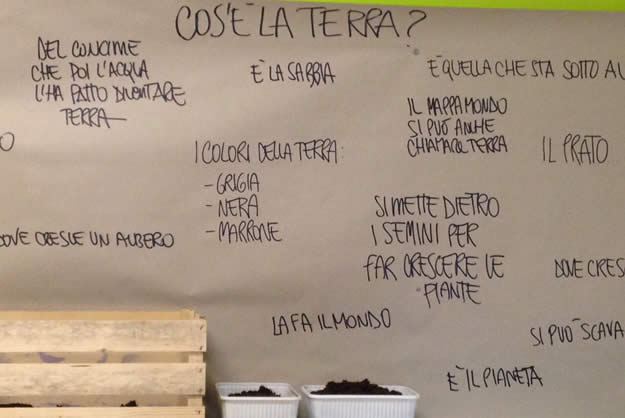 COS'È LA TERRA?
DEL CONCIME
CHE POI L'ACQUA
L'HA FATTO DIVENTARE
TERRA
È LA SABBIA
È QUELLA CHE STA SOTTO AL
IL MAPPAMONDO
SI PUÒ ANCHE
CHIAMARE TERRA
IL PRATO
O
I COLORI DELLA TERRA:
- GRIGIA
- NERA
- MARRONE
DOVE CRESCE UN ALBERO
SI METTE DIETRO
I SEMINI PER
FAR CRESCERE LE
PIANTE
DOVE CRES
LA FA IL MONDO
SI PUÒ SCAVA
È IL PIANETA